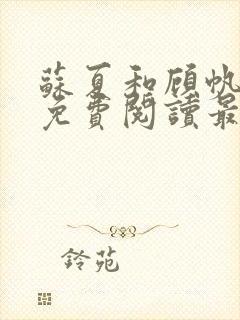 蘇夏和顧帆
免費閱讀最
鈴苑